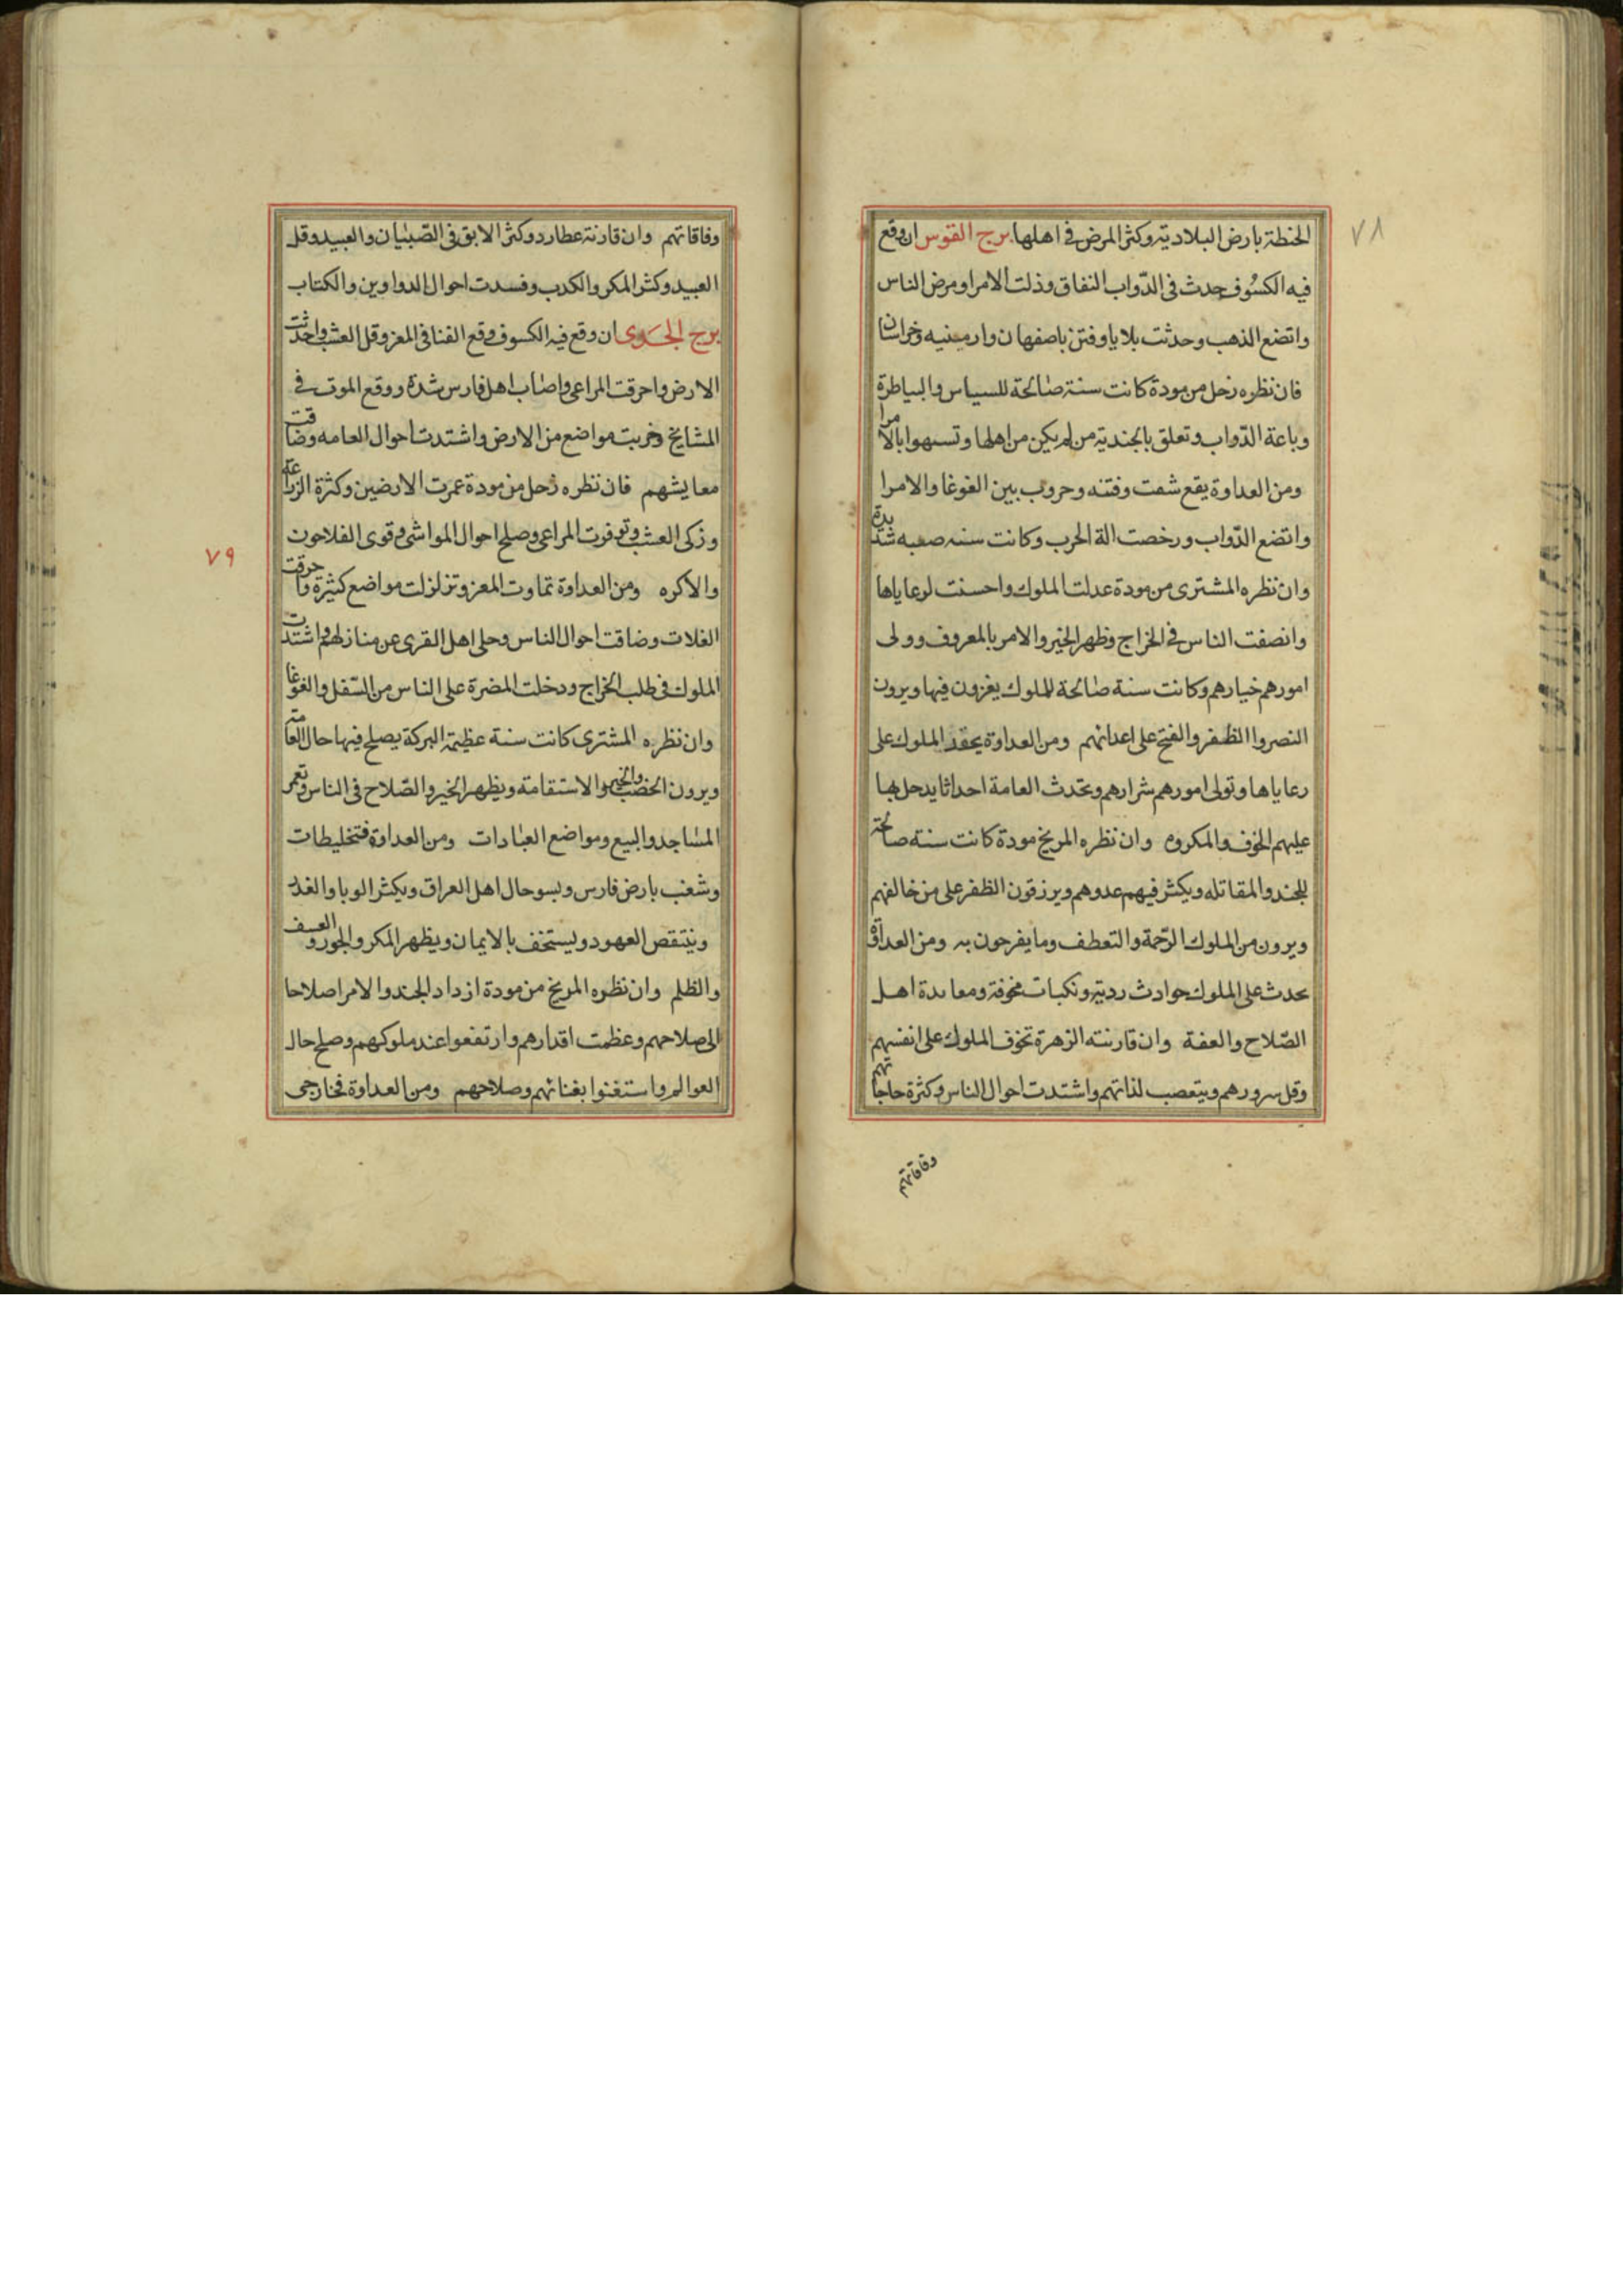 ٧٨
الحنطة بارض البلاديته وكثر المرض فى اهلها برج القوس ان وقع
فيه الكسوف حدث فى الدّواب النفاق وذلت الامرا ومرض الناس
واتضع الذهب وحدثت بلايا وفتن باصفهان وارمينيه وخراسان
فان نظره زحل من مودة كانت سنة صالحة للسياس والبياطرة
وباعة الدّواب وتعلق بالجندية من لم يكن من اهلها وتسهوا بالامرا
ومن العداوة يقع شعت وفتنه وحروب بين الغوغا والامرا
واتضع الدّواب ورخصت الة الحرب وكانت سنه صعبه شديدة
وان نظره المشترى من مودة عدلت الملوك واحسنت لرعاياها
وانصفت الناس فى الخراج وظهر الخير والامر بالمعروف وولى
امورهم خيارهم وكانت سنة صالحة للملوك يغزون فيها ويرون
النصر والظفر والفتح على اعدائهم ومن العداوة يحقد الملوك على
رعاياها وتولى امورهم شرارهم وتحدث العامة احداثا يدحل بها
عليهم الخوف والمكروه وان نظره المريخ مودة كانت سنة صالحة
للجند والمقاتله ويكثر فيهم عدوهم ويرزقون الظفر على من خالفهم
ويرون من الملوك الرّحمة والتعطف وما يفرحون به ومن العداوة
يحدث على الملوك حوادث ردية ونكبات مخوفة ومعاندة اهل
الصّلاح والعفة وان قارنته الزهرة تخوف الملوك على انفسهم
وقل سرورهم ويتعصب لذاتهم واشتدت احوال الناس وكثرة حاجاتهم
وفاقاتهم
وفاقاتهم وان قارنة عطارد وكثر الابق فى الصّبيان والعبيد وقل
العبيد وكثر المكر والكدب وفسدت احوال الدواوين والكتاب
برج الجدى ان وقع فيه الكسوف وقع الفنا فى المعز وقل العشب واحدثت
الارض واحرقت المراعى واصاب اهل فارس شدة ووقع الموت فى
المشايخ وخربت مواضع من الارض واشتدت احوال العامه وضاقت
معايشهم فان نظره زحل من مودة عمرت الارضين وكثرة الزراعة
وزكى العشب وتوفرت المراعى وصلح احوال المواشى وقوى الفلاحون
والاكره ومن العداوة تماوت المعز وتزلزلت مواضع كثيرة واحرقت
الغلات وضاقت احوال الناس وحلى اهل القرى عن منازلهم واشتدت
الملوك فى طلب الخراج ودخلت المضرة على الناس من السّفل والغوغا
وان نظره المشترى كانت سنة عظيمة البركة يصلح فيها حال العامة
ويرون الخصب والخير والاستقامة ويظهر الخير والصّلاح فى الناس وتعمر
المساجد والبيع ومواضع العبادات ومن العداوة فتخليطات
وشغب بارض فارس ويسو حال اهل العراق ويكثر الوبا والغدر
وينتقص العهود ويستخف بالايمان ويظهر المكر والجور والعسف
والظلم وان نظره المريخ من مودة ازداد الجند والامرا صلاحا
الى صلاحهم وعظمت اقدارهم وارتفعوا عند ملوكهم وصلح حال
العوالم واستغنوا بغنائهم وصلاحهم ومن العداوة فخارجى
٧٩